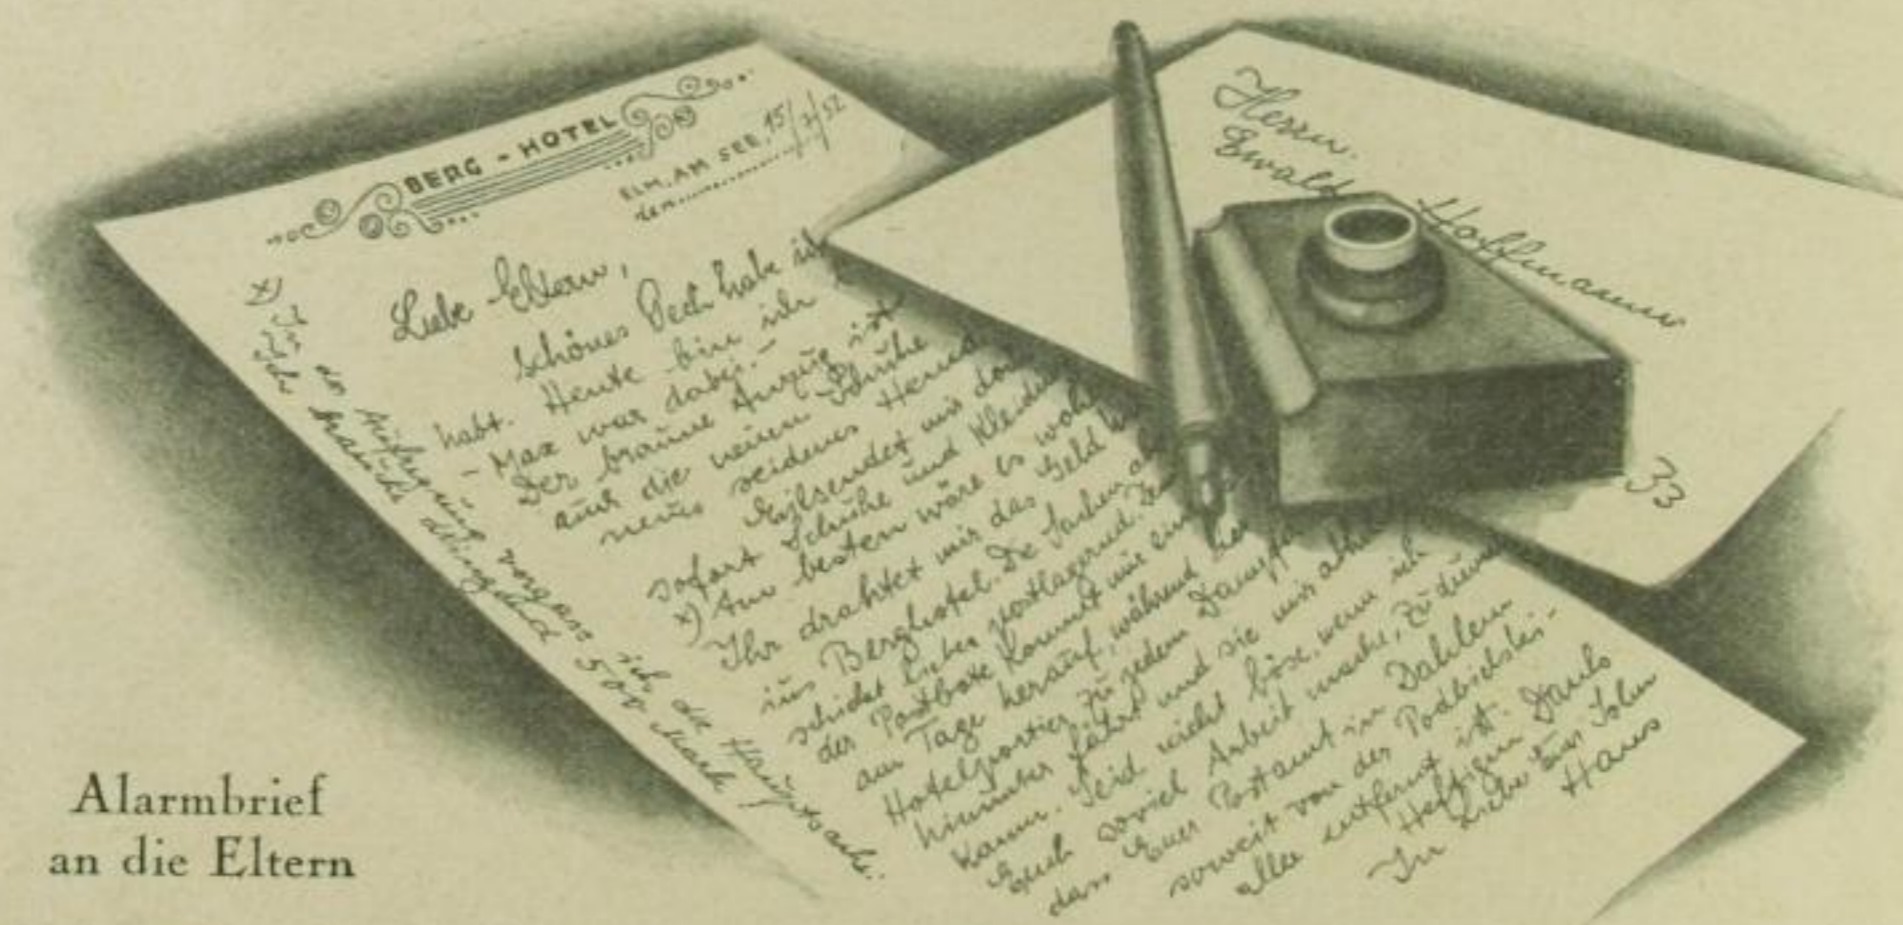 BERG - HOTEL
ELM, AM SEE, 15/7/32
den
Liebe Eltern,
schönes Pech habe ich
habt. Heute bin ich
- Max war dabei. -
Der braune Anzug ist
auch die neuen Schuhe
neues seidenes Hemd
Eilsendet mir doch
sofort Schuhe und Kleidung
x) Am besten wäre es wohl
Ihr drahtet mir das Geld
ins Berghotel. Die Sachen
schickt lieber postlagernd.
der Postbote kommt nur ein
am Tage herauf, während
Hotelportier zu jedem Dampfer
hinunter fährt und sie mir
kann. Seid nicht böse, wenn ich
Euch soviel Arbeit mache, zudem
dass Euer Postamt in Dahlem
soweit von der Podbielski-
allee entfernt ist. Dank
Heftigen
In Liebe Euer Sohn
Hans
x) In der Aufregung vergass ich die Hauptsache.
Ich brauche dringend 500 Mark!
Herrn.
Ewald Hoffmann
33
Alarmbrief
an die Eltern